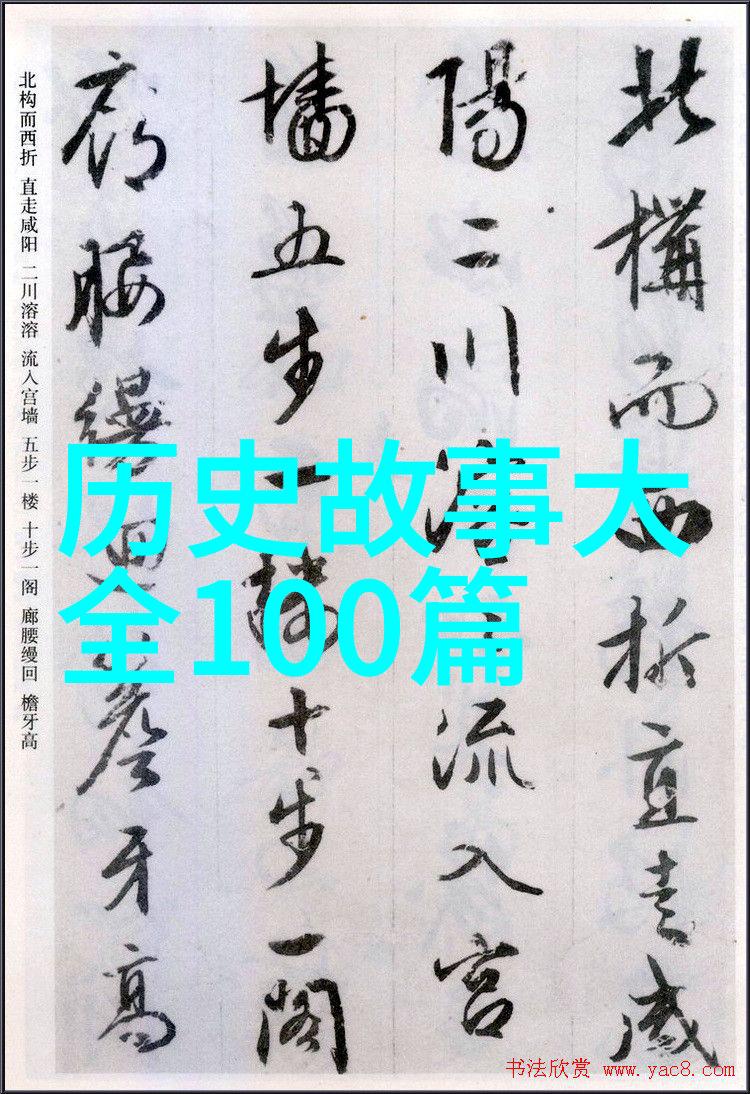 北構而西折直走咸
陽二川溶々流入宮
墻五步一樓十步一閣
廊腰縵迴簷牙高
北构而西折 直走咸阳 二川溶溶 流入宫墙 五步一楼 十步一阁 廊腰缦回 檐牙高
历史故事大
全100篇
书法欣赏 www.yac8.com